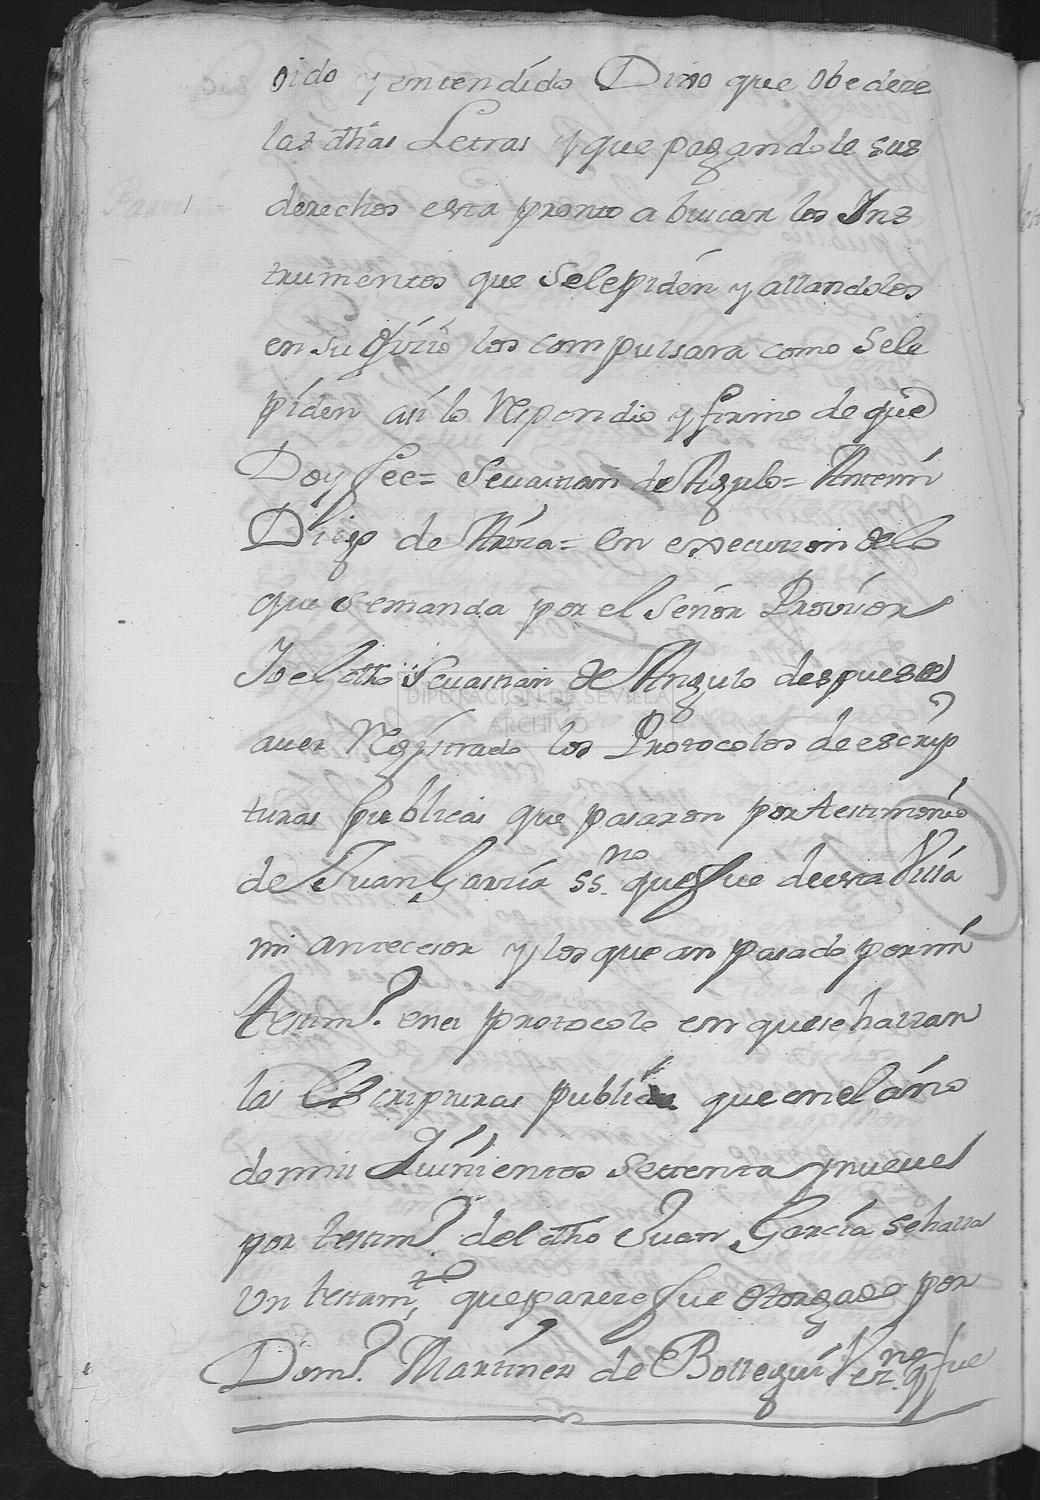 oido y entendido Dixo que obedeze
las dhas Letras y que pagandole sus
derechos esta pronto a buscar los Ins
trumentos que selepiden y allandolos
en su offizio los compulsara como Sele
piden asi lo Respondio y firmo de que
Doy fee = Sevastian de Angulo = Antemi
Diego de = en execuzion de lo
que semanda por el Señor Provisor
Yo el dho Sevastian de Angulo despues de
aver Registrado los Protocolos de escrip
turas publicas que pasaron por testimonio
de Juan Garzia ssno que fue de esta Villa
mi antecesor y los que an pasado por mi
testimo. en el protocolo en que se hallan
las Escripturas publicas que en el año
de mill Quinientos Settenta y nueve
por testimo. del dho Juan Garcia se halla
Un testamto que pareze fue otorgado por
Domo. Martinez de Vezno q fue
DIPUTACIÓN DE SEVILLA
ARCHIVO